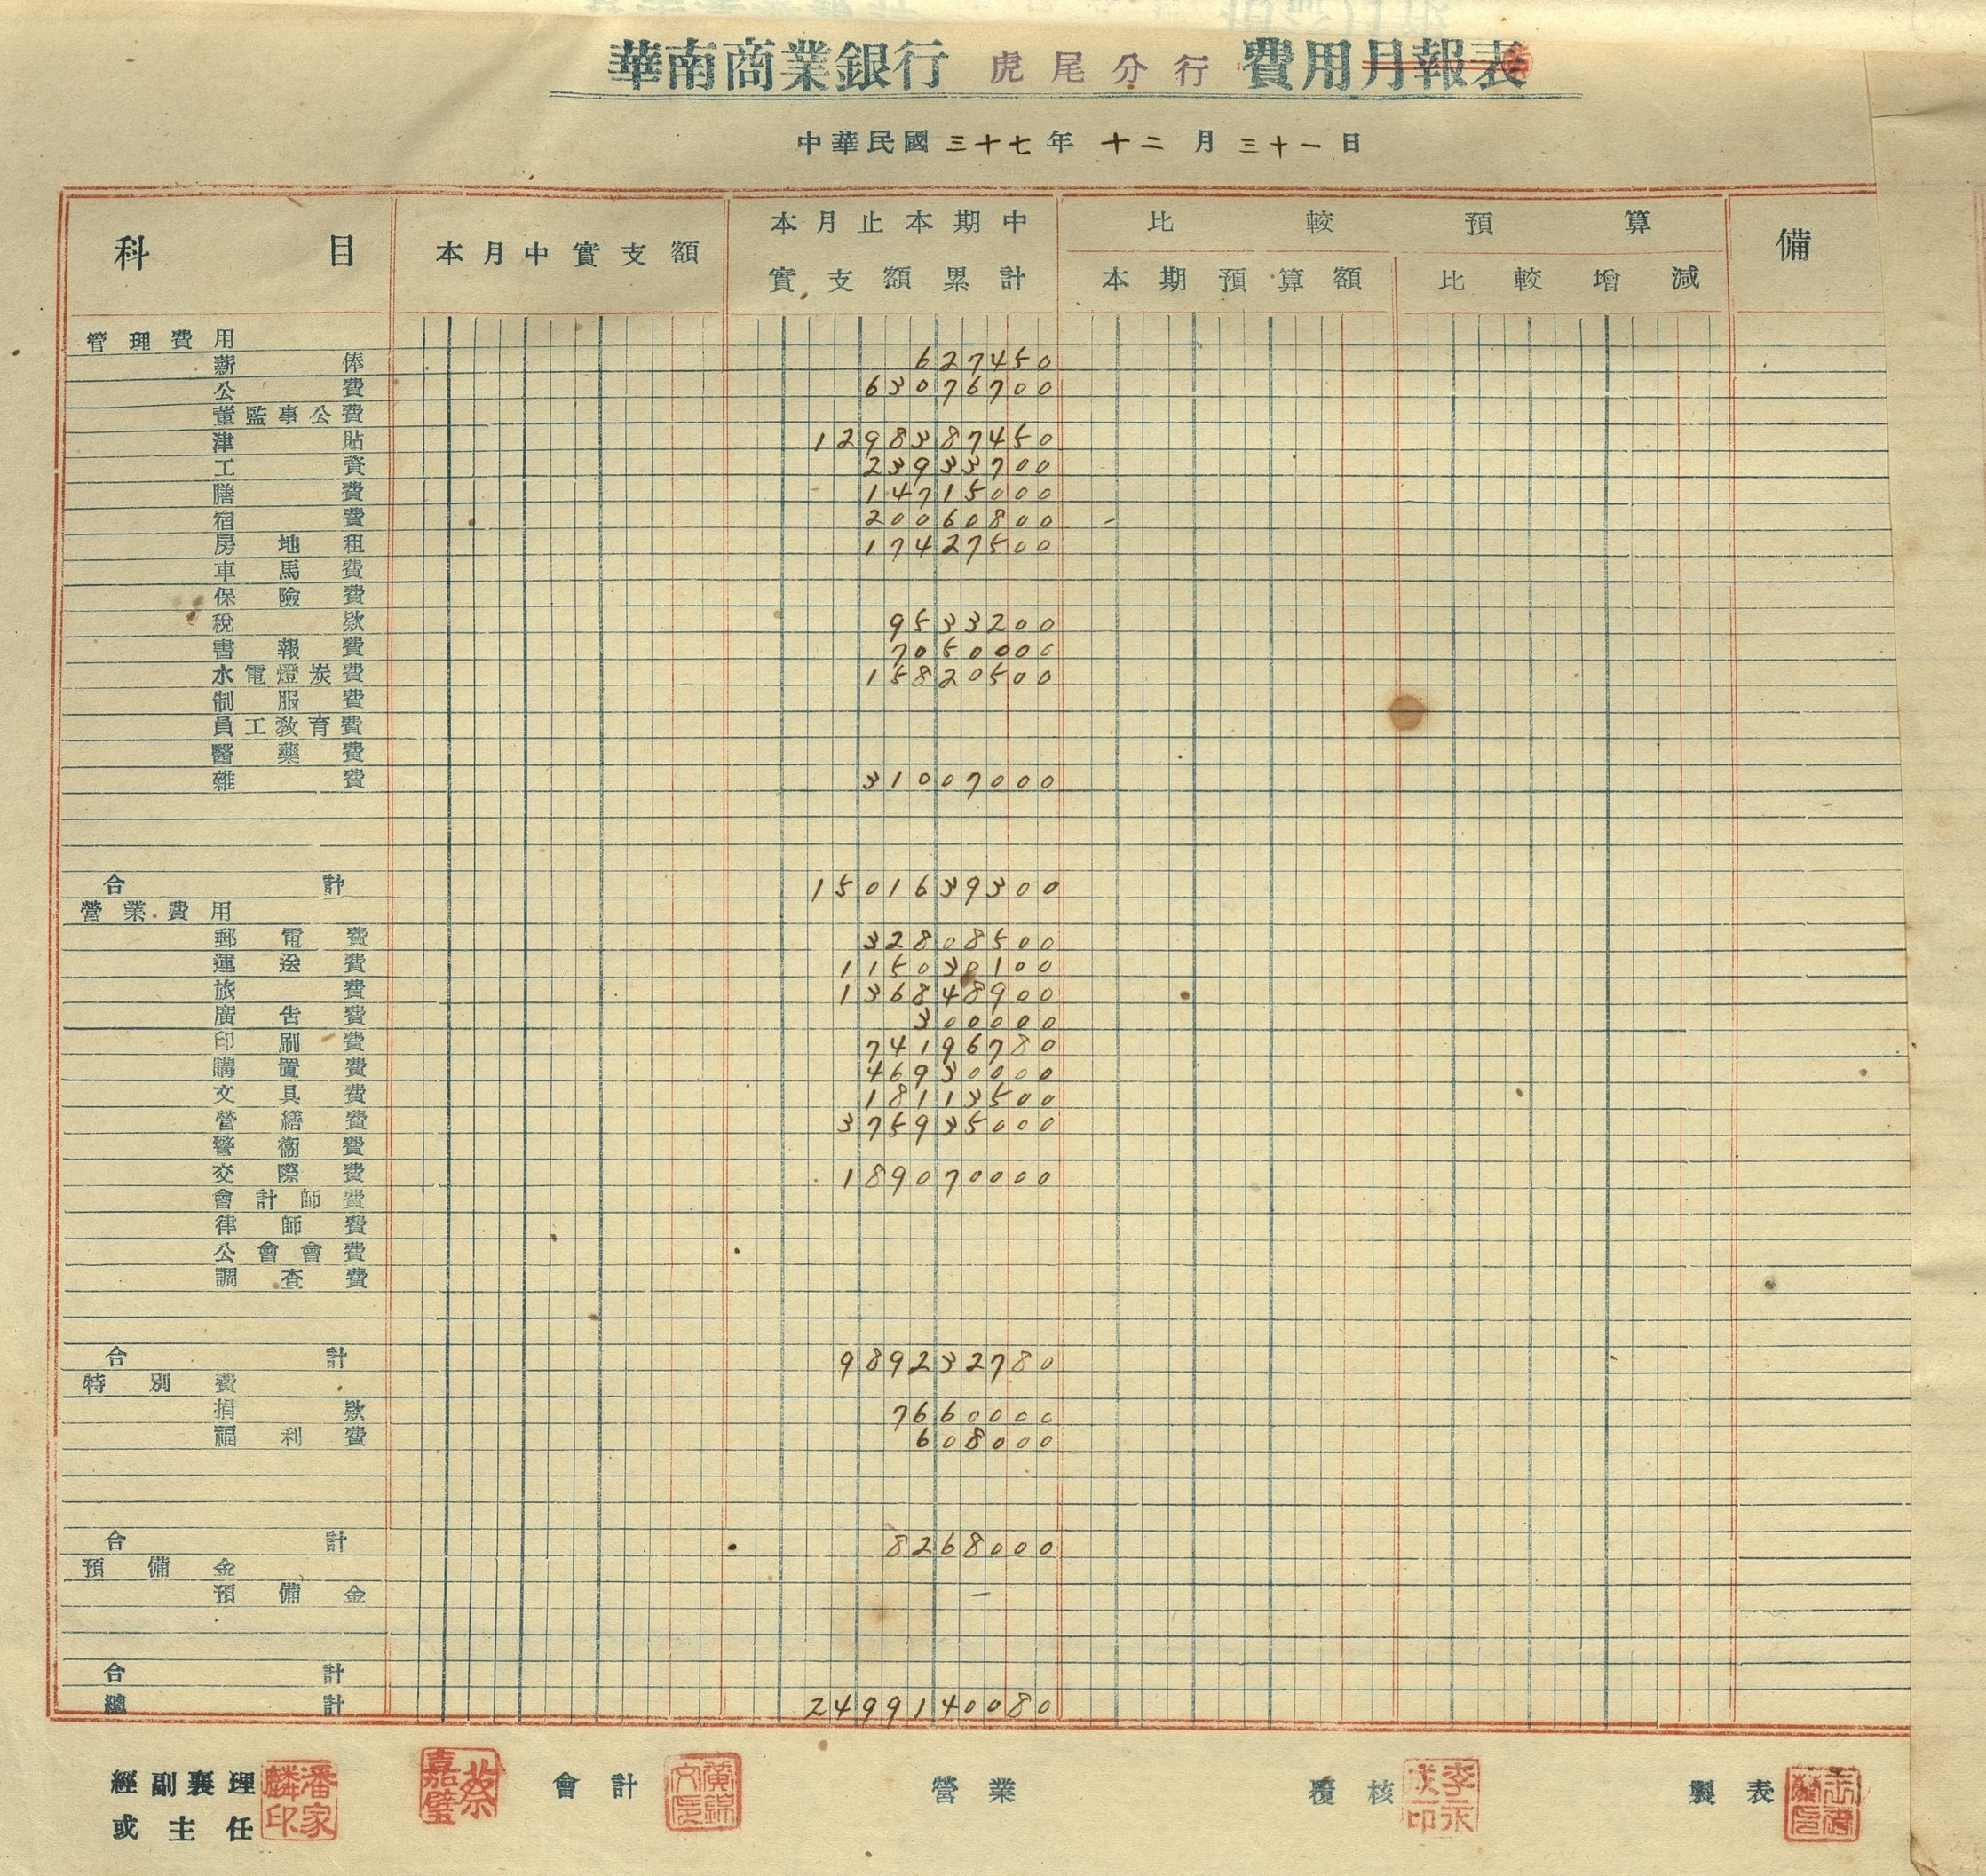 華南商業銀行 虎尾分行 費用月報表
中華民國三十七年十二月三十一日
科目 本月中實支額 本月止本期中實支額累計 比較預算 備
本期預算額 比較增減
管理費用
薪俸 627450
公費 63076700
董監事公費
津貼 1298387450
工資 23933700
膳費 14715000
宿費 20060800
房地租 17427500
車馬費
保險費
稅款 9533200
書報費 7050000
水電燈炭費 15820500
制服費
員工教育費
醫藥費
雜費 31007000
合計 1501639300
營業費用
郵電費 32808500
運送費 115030100
旅費 136848900
廣告費 300000
印刷費 74196780
購置費 46930000
文具費 18113500
營繕費 375935000
警衞費
交際費 189070000
會計師費
律師費
公會會費
調查費
合計 989232780
特別費
捐款 7660000
福利費 608000
合計 8268000
預備金
預備金 —
合計
總計 2499140080
經副襄理 潘家麟印 蔡嘉璧 會計 營業 覆核 李永成印 製表
或主任